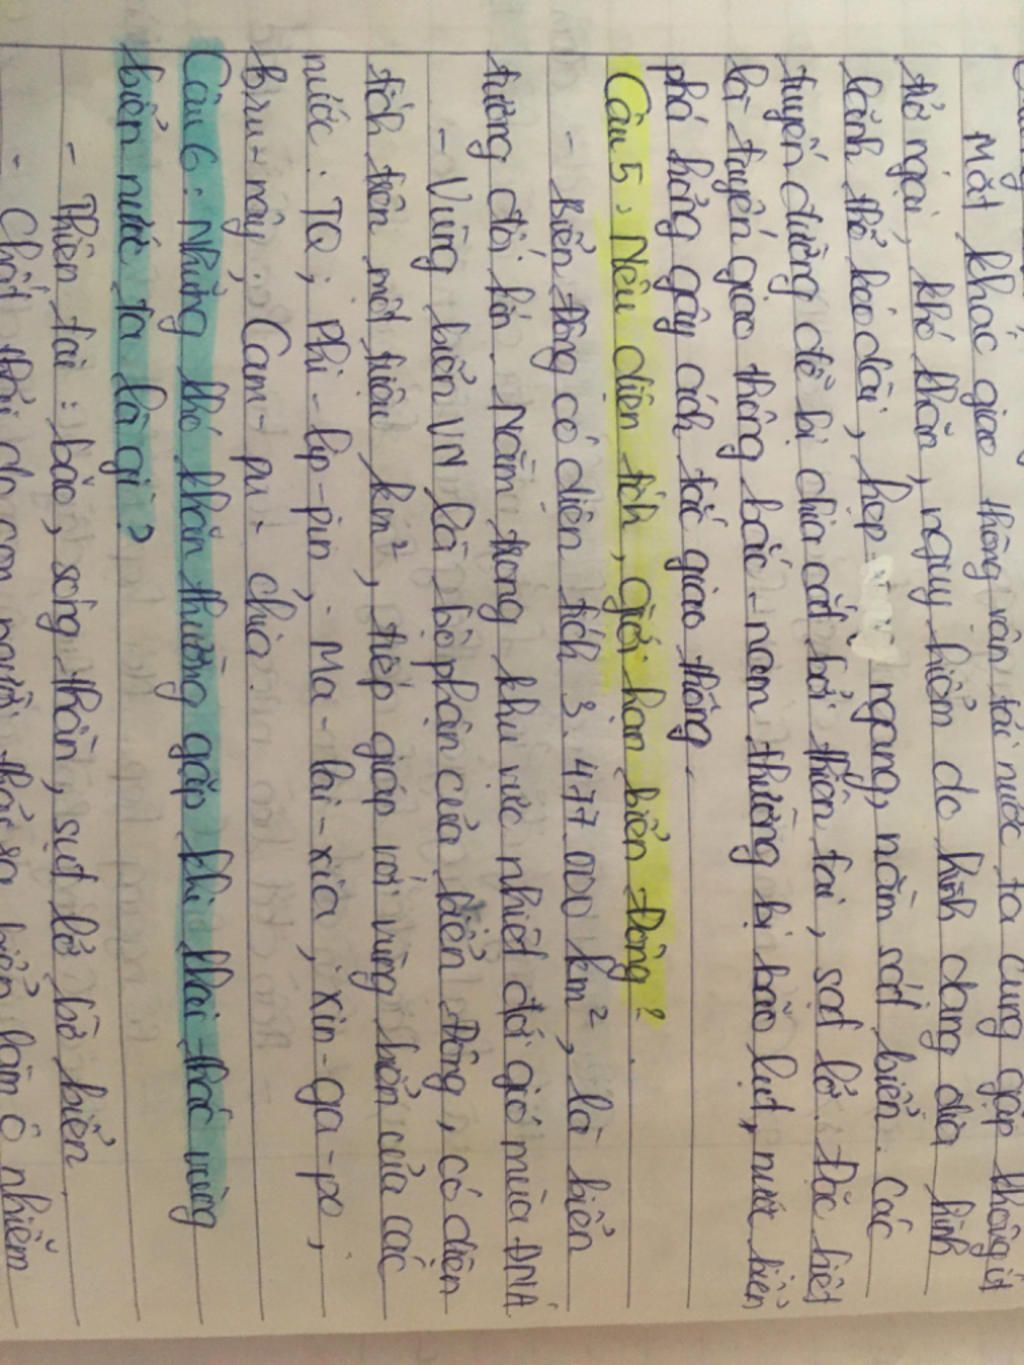 Mặt khác giao thông vận tải nước ta cũng gặp không ít
trở ngại, khó khăn, nguy hiểm do hình dạng địa hình
lãnh thổ kéo dài, hẹp ngang, nằm sát biển. Các
tuyến đường dễ bị chia cắt bởi thiên tai, sạt lở. Đặc biệt
là tuyến giao thông bắc - nam thường bị bão lụt, nước biển
phá hỏng gây ách tắc giao thông.
Câu 5: Nêu diện tích, giới hạn biển Đông?
- Biển Đông có diện tích 3.477.000 km², là biển
tương đối kín. Nằm trong khu vực nhiệt đới gió mùa ĐNÁ
- Vùng biển VN là bộ phận của biển Đông, có diện
tích trên một triệu km², tiếp giáp với vùng biển của các
nước: TQ; Phi-lip-pin; Ma-lai-xia; Xin-ga-po;
Bru-nây; Cam-pu-chia.
Câu 6: Những khó khăn thường gặp khi khai thác vùng
biển nước ta là gì?
- Thiên tai: bão, sóng thần, sụt lở bờ biển.
- Chất thải do con người thải ra biển làm ô nhiễm